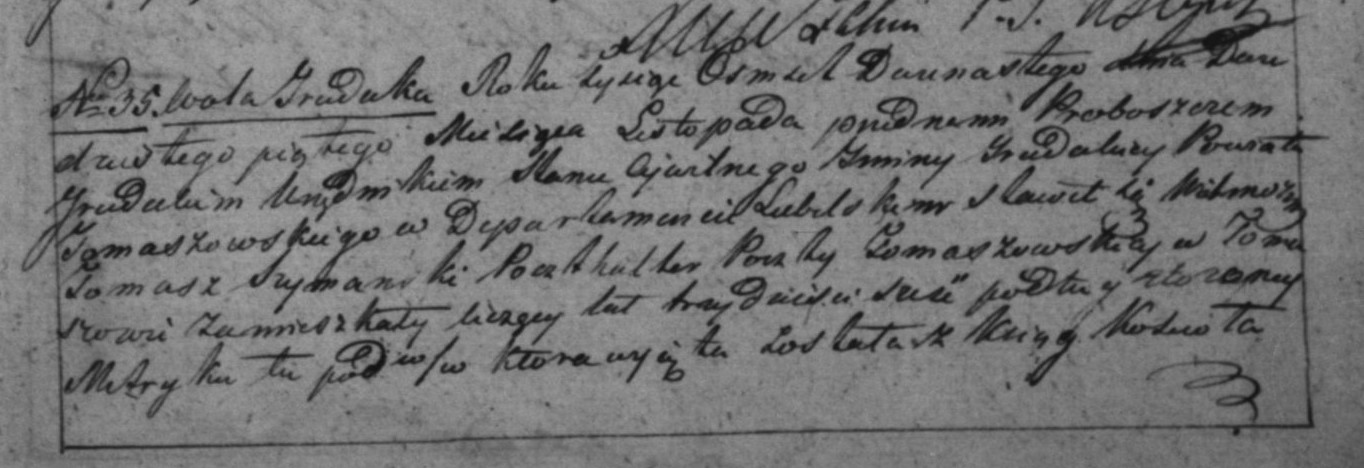 Nro 35. Wola Grudulka Roku tysiąc Osmset Dwunastego dnia Dwu
dziestego piątego Miesiąca Listopada przednami Proboszczem
Grudulkim Urzędnikiem Stanu Cywilnego Gminy Grudulkiey Powiatu
Tomaszowskiego w Departamencie Lubelskim stawił się Wielmożny
Tomasz Szymanski Poczthalter Poczty Tomaszowskiey w Toma
szowie zamieszkały liczący lat trzydzieści sześć podług złożoney
Metryki tu pod w/w ktora wyięta została z Xiąg Koscioła